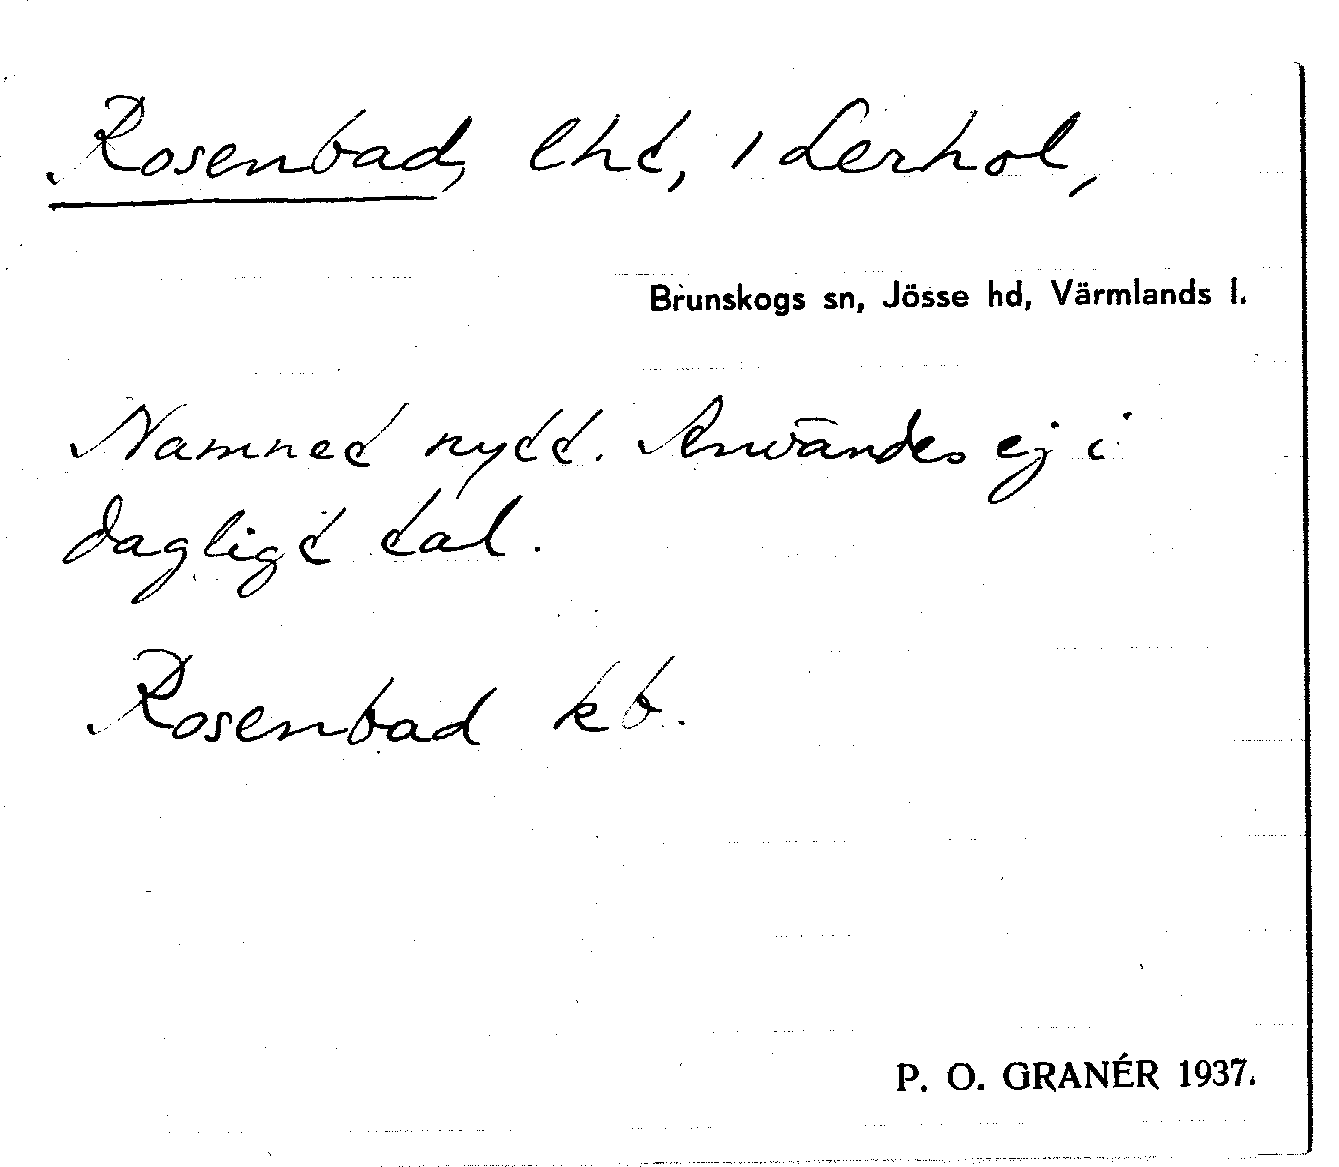 Rosenbad, lht, i Lerhol,
Brunskogs sn, Jösse hd, Värmlands l.
Namnet nytt. Användes ej i
dagligt tal.
Rosenbad kb.
P. O. GRANÉR 1937.